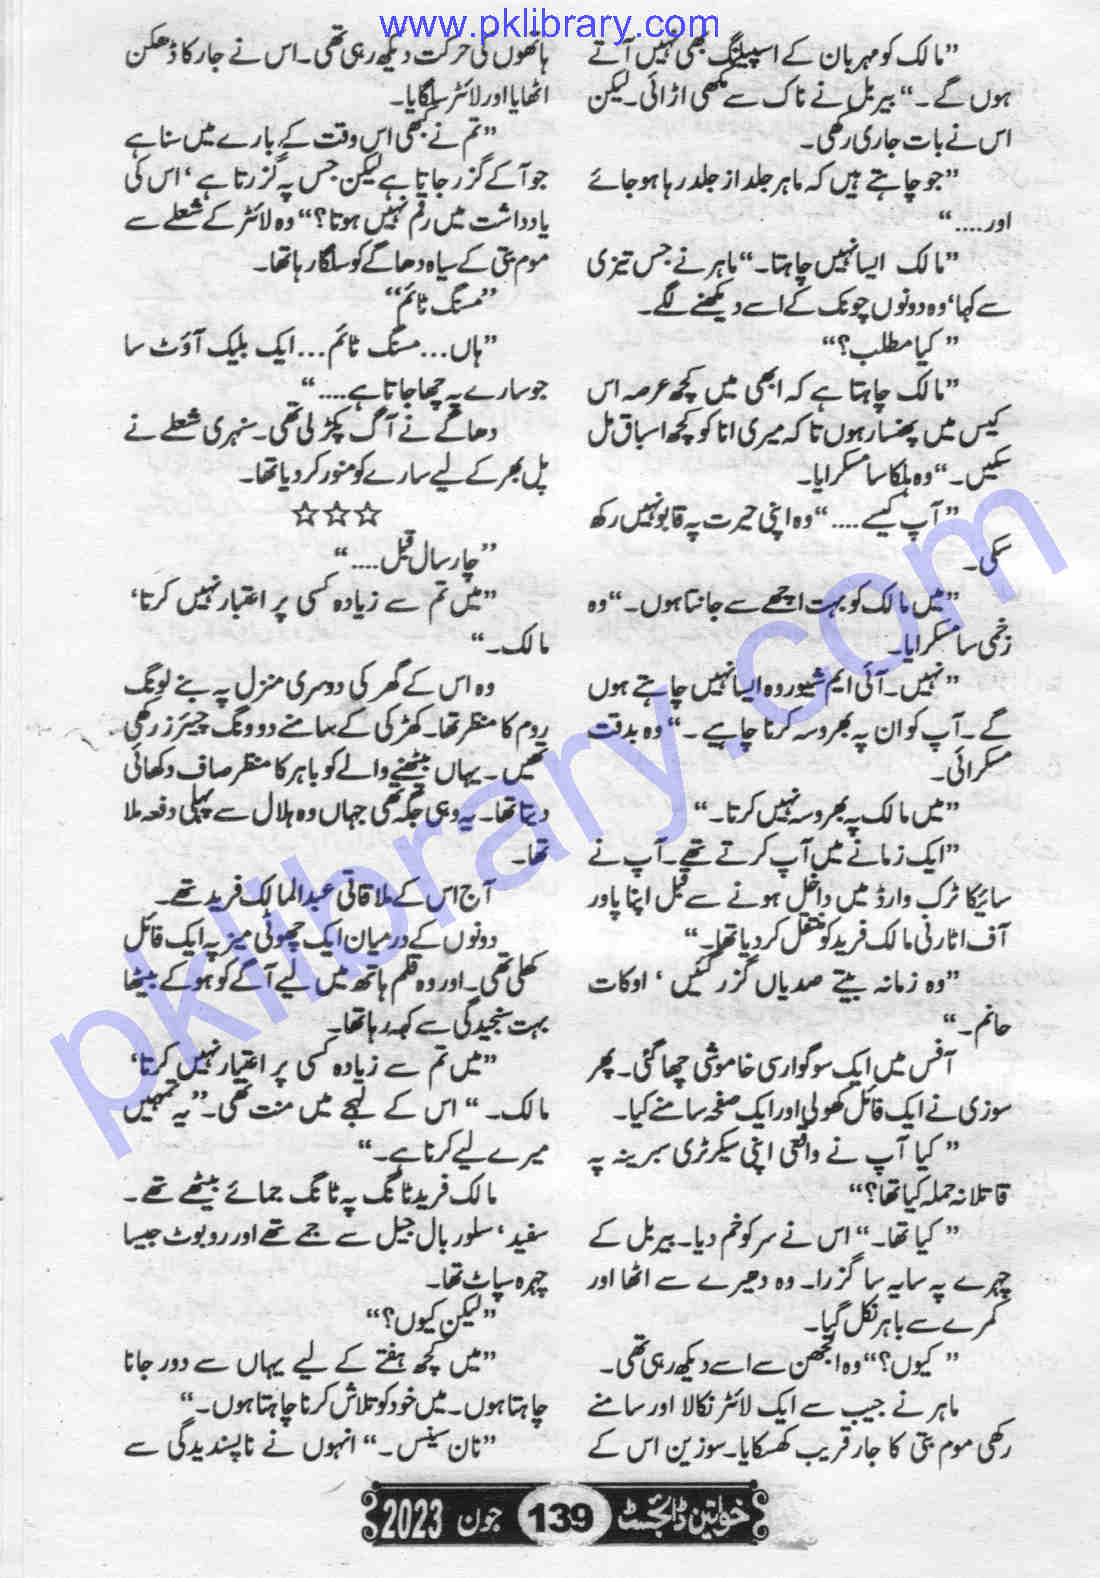 www.pklibrary.com
”مالک کو مہربان کے اسپیلنگ بھی نہیں آتے
ہوں گے۔“ بیربل نے ناک سے مکھی اڑائی۔ لیکن
اس نے بات جاری رکھی۔
”جو چاہتے ہیں کہ ماہر جلد از جلد رہا ہو جائے
اور....“
”مالک ایسا نہیں چاہتا۔“ ماہر نے جس تیزی
سے کہا‘ وہ دونوں چونک کے اسے دیکھنے لگے۔
”کیا مطلب؟“
”مالک چاہتا ہے کہ ابھی میں کچھ عرصہ اس
کیس میں پھنسا رہوں تاکہ میری انا کو کچھ اسباق مل
سکیں۔“ وہ ہلکا سا مسکرایا۔
”آپ کیسے....“ وہ اپنی حیرت پہ قابو نہیں رکھ
سکی۔
”میں مالک کو بہت اچھے سے جانتا ہوں۔“ وہ
زخمی سا مسکرایا۔
”نہیں۔ آئی ایم شیور وہ ایسا نہیں چاہتے ہوں
گے۔ آپ کو ان پہ بھروسہ کرنا چاہیے۔“ وہ بدقت
مسکرائی۔
”میں مالک پہ بھروسہ نہیں کرتا۔“
”ایک زمانے میں آپ کرتے تھے۔ آپ نے
سائیکاٹرک وارڈ میں داخل ہونے سے قبل اپنا پاور
آف اٹارنی مالک فرید کو منتقل کر دیا تھا۔“
”وہ زمانہ بیتے صدیاں گزر گئیں‘ اوکات
خانم۔“
آفس میں ایک سوگواری خاموشی چھا گئی۔ پھر
سوزی نے ایک فائل کھولی اور ایک صفحہ سامنے کیا۔
”کیا آپ نے واقعی اپنی سیکرٹری سبرینہ پہ
قاتلانہ حملہ کیا تھا؟“
”کیا تھا۔“ اس نے سر کو خم دیا۔ بیربل کے
چہرے پہ سایہ سا گزرا۔ وہ دھیرے سے اٹھا اور
کمرے سے باہر نکل گیا۔
”کیوں؟“ وہ الجھن سے اسے دیکھ رہی تھی۔
ماہر نے جیب سے ایک لائٹر نکالا اور سامنے
رکھی موم بتی کا جار قریب کھسکایا۔ سوزین اس کے
ہاتھوں کی حرکت دیکھ رہی تھی۔ اس نے جار کا ڈھکن
اٹھایا اور لائٹر سلگایا۔
”تم نے کبھی اس وقت کے بارے میں سنا ہے
جو آ کے گزر جاتا ہے لیکن جس پہ گزرتا ہے‘ اس کی
یادداشت میں رقم نہیں ہوتا؟“ وہ لائٹر کے شعلے سے
موم بتی کے سیاہ دھاگے کو سلگا رہا تھا۔
”مسنگ ٹائم“
”ہاں... مسنگ ٹائم... ایک بلیک آؤٹ سا
جو سارے پہ چھا جاتا ہے....“
دھاگے نے آگ پکڑ لی تھی۔ سنہری شعلے نے
پل بھر کے لیے سارے کو منور کر دیا تھا۔
☆☆☆
”چار سال قبل....“
”میں تم سے زیادہ کسی پر اعتبار نہیں کرتا‘
مالک۔“
وہ اس کے گھر کی دوسری منزل پہ بنے لونگ
روم کا منظر تھا۔ کھڑکی کے سامنے دو ونگ چیئرز رکھی
تھیں۔ یہاں بیٹھنے والے کو باہر کا منظر صاف دکھائی
دیتا تھا۔ یہ وہی جگہ تھی جہاں وہ ہلال سے پہلی دفعہ ملا
تھا۔
آج اس کے ملاقاتی عبدالمالک فرید تھے۔
دونوں کے درمیان ایک چھوٹی میز پہ ایک فائل
کھلی تھی۔ اور وہ قلم ہاتھ میں لیے آگے کو ہو کے بیٹھا
بہت سنجیدگی سے کہہ رہا تھا۔
”میں تم سے زیادہ کسی پر اعتبار نہیں کرتا‘
مالک۔“ اس کے لہجے میں منت تھی۔ ”یہ تمہیں
میرے لیے کرنا ہے۔“
مالک فرید ٹانگ پہ ٹانگ جمائے بیٹھے تھے۔
سفید‘ سلور بال جیل سے جمے تھے اور روبوٹ جیسا
چہرہ سپاٹ تھا۔
”لیکن کیوں؟“
”میں کچھ ہفتے کے لیے یہاں سے دور جانا
چاہتا ہوں۔ میں خود کو تلاش کرنا چاہتا ہوں۔“
”نان سینس۔“ انہوں نے ناپسندیدگی سے
خواتین ڈائجسٹ 139 جون 2023
pklibrary.com